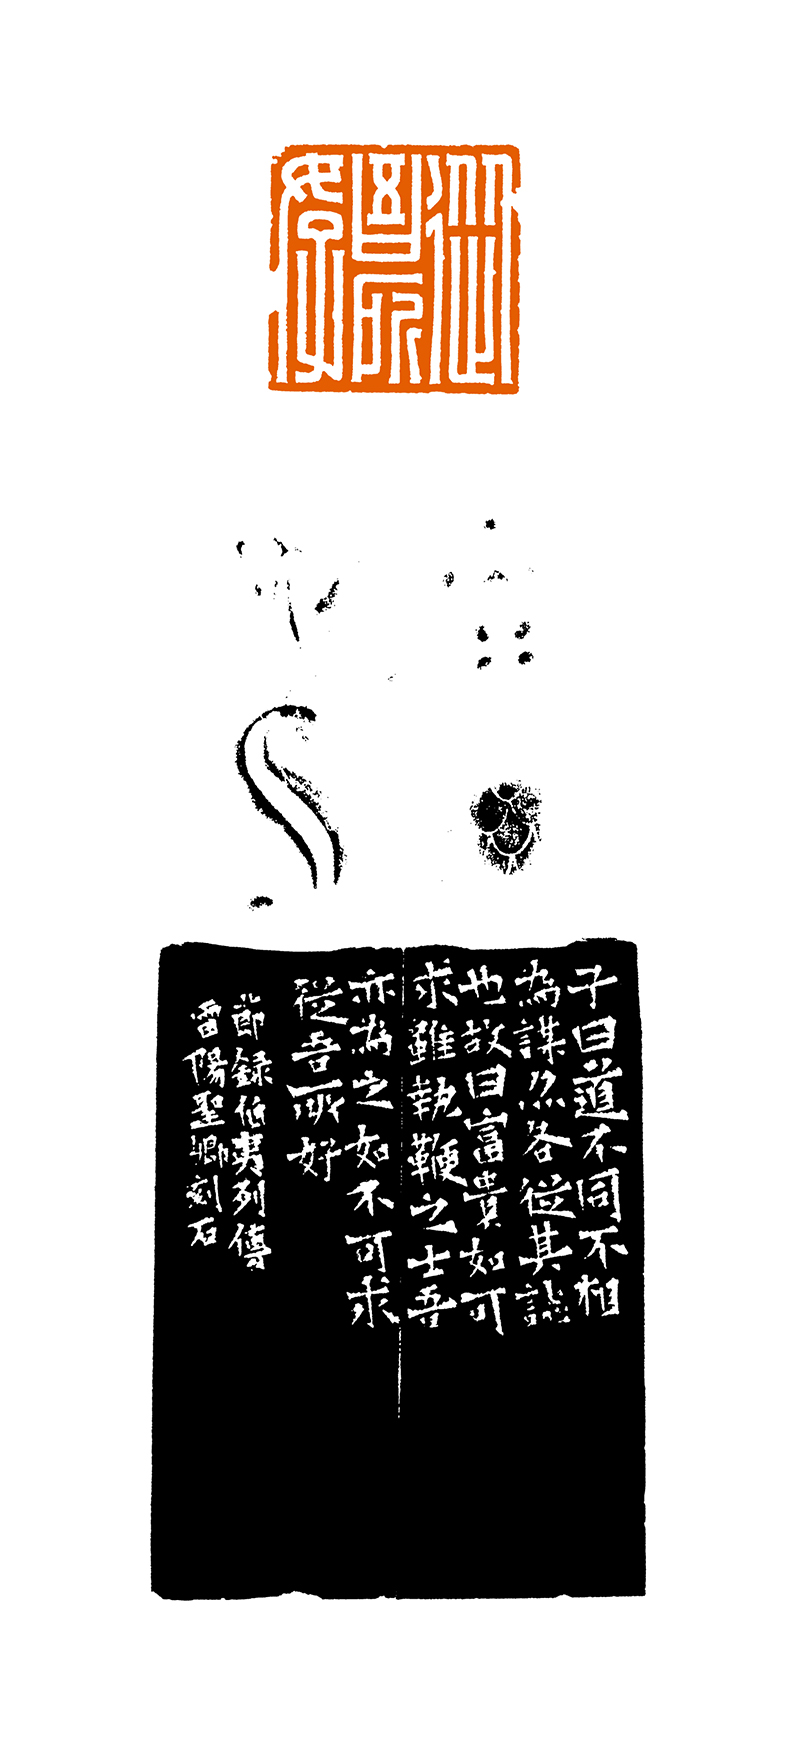 從吾所好
子曰道不同不相
為謀亦各從其志
也故曰富貴如可
求雖執鞭之士吾
亦為之如不可求
從吾所好
節錄伯夷列傳
雷陽聖卿刻石